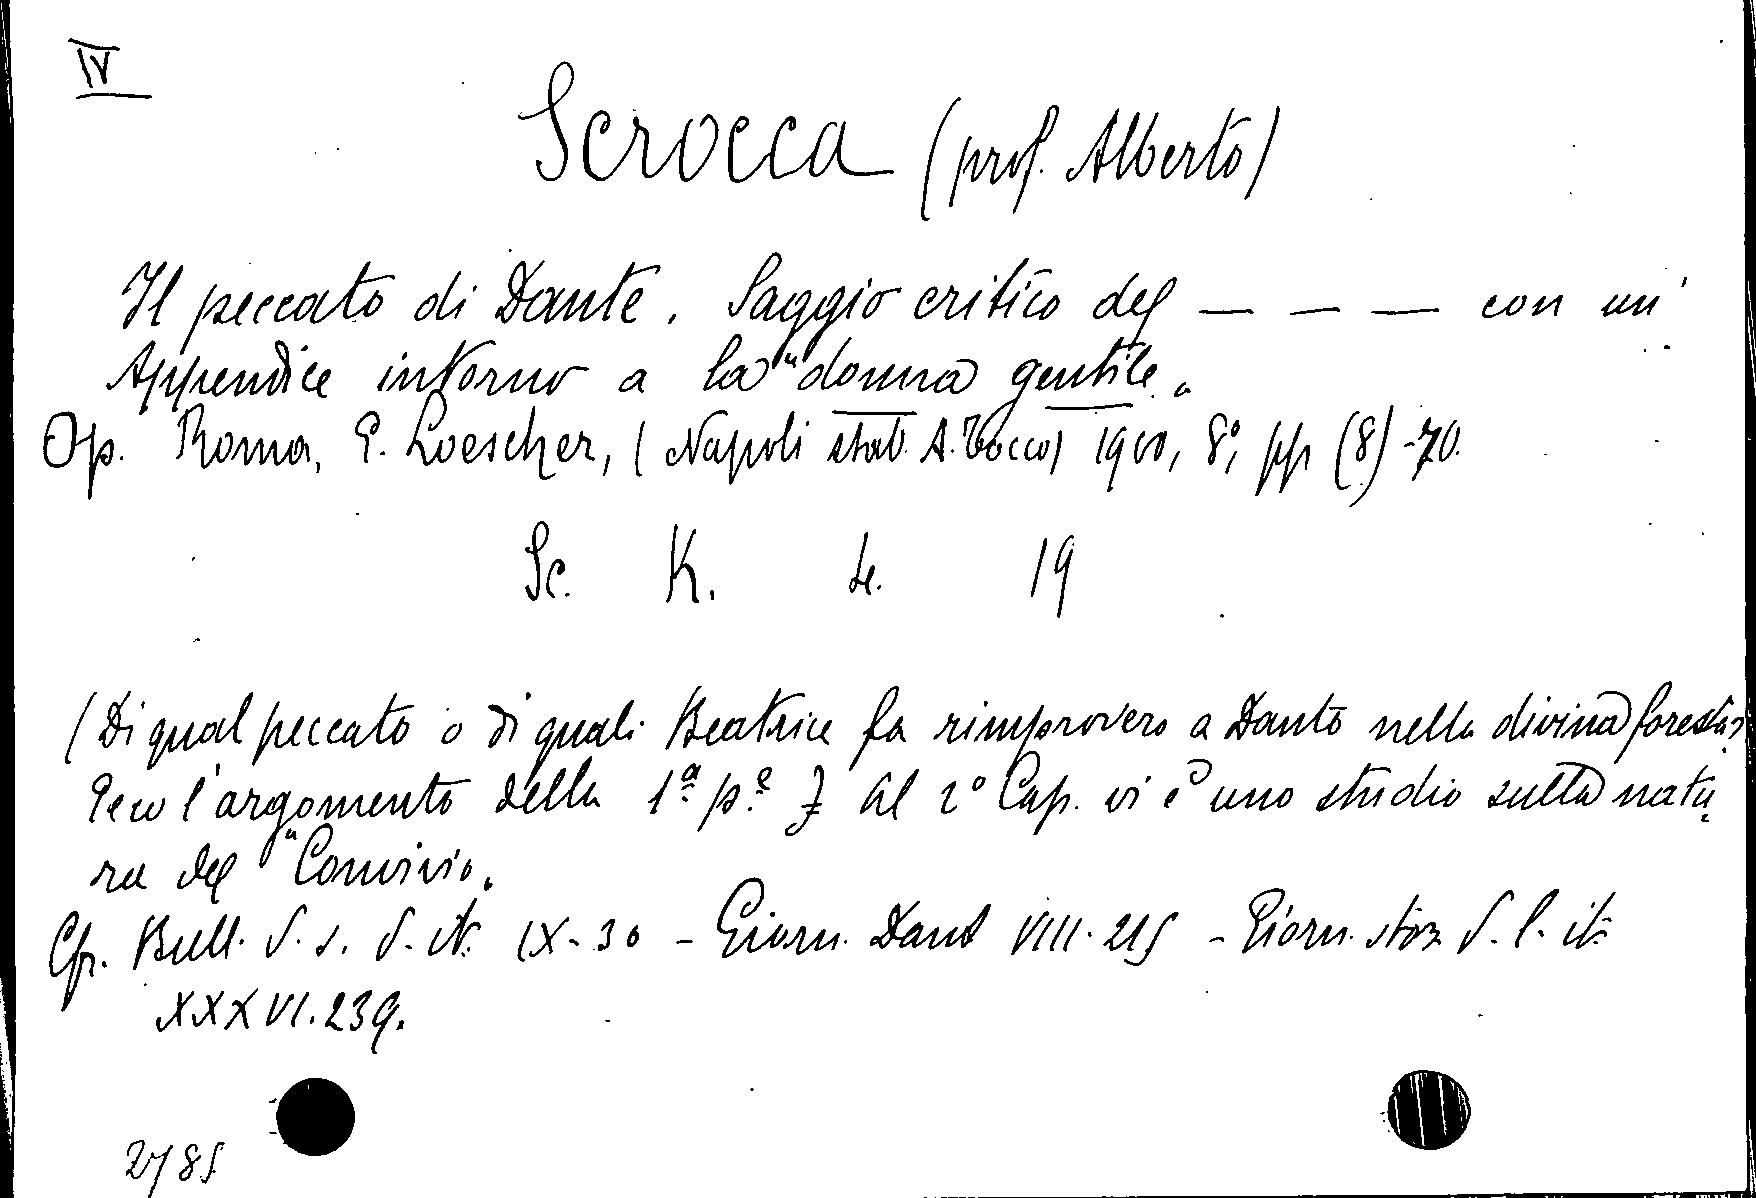 IV
Scrocca (prof. Alberto)
Il peccato di Dante. Saggio critico del — — — con un'
Appendice intorno a la "donna gentile„
Op. Roma, E. Loescher, (Napoli stab. A. Tocco) 1900, 8°, pp (8)-70.
Sc. K. 4. 19
(Di qual peccato o di quali Beatrice fa rimprovero a Dante nella divina foresta?
Ecco l'argomento della 1ª p.e Al 2° Cap. vi è uno studio sulla natu
ra del "Convivio„
Cfr. Bull. d. s. d. it. IX-30 - Giorn. Dant VIII. 215 - Giorn. stor d. l. it.
XXXVI. 239.
2785